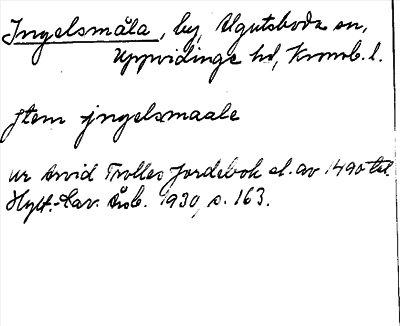 Ingelsmåla, by, Älgutsboda sn,
Uppvidinge hd, Kronob. l.
Jtem jngelsmaale
ur Arvid Trolles Jordebok sl. av 1490-tal.
Hylt.-Cav. Årsb. 1930, s. 163.